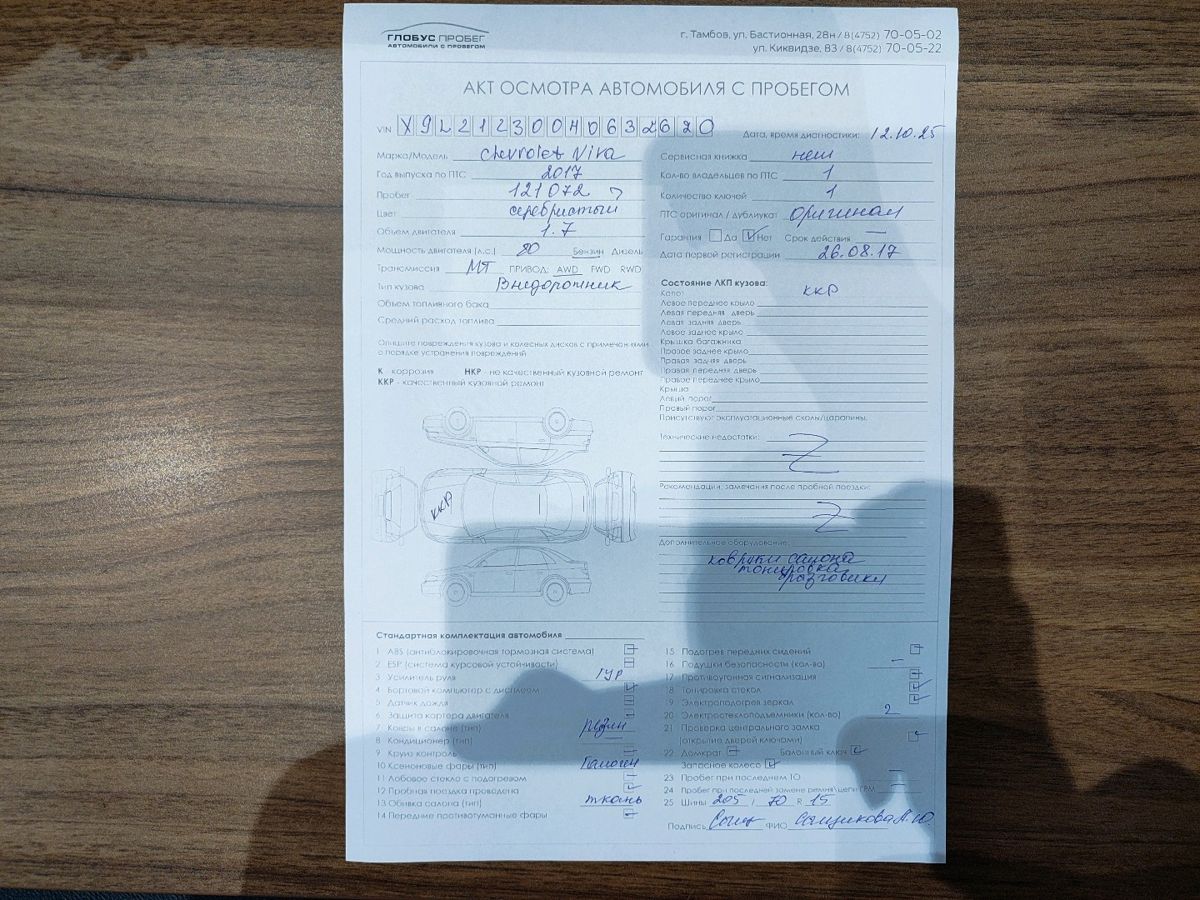 ГЛОБУС ПРОБЕГ
АВТОМОБИЛИ С ПРОБЕГОМ
г. Тамбов, ул. Бастионная, 28н / 8(4752) 70-05-02
ул. Киквидзе, 83 / 8(4752) 70-05-22
АКТ ОСМОТРА АВТОМОБИЛЯ С ПРОБЕГОМ
VIN X9L212300H0632620
Дата, время диагностики: 12.10.25
Марка/Модель Chevrolet Niva
Год выпуска по ПТС 2017
Пробег 121072
Цвет серебристый
Объем двигателя 1.7
Мощность двигателя (л.с.) 80 Бензин Дизель
Трансмиссия МТ ПРИВОД: AWD FWD RWD
Тип кузова Внедорожник
Объем топливного бака
Средний расход топлива
Опишите повреждения кузова и колесных дисков с примечаниями
о порядке устранения повреждений
К - коррозия НКР - не качественный кузовной ремонт
ККР - качественный кузовной ремонт
ККР
Сервисная книжка нет
Кол-во владельцев по ПТС 1
Количество ключей 1
ПТС оригинал / дубликат оригинал
Гарантия Да Нет Срок действия —
Дата первой регистрации 26.08.17
Состояние ЛКП кузова:
Капот ККР
Левое переднее крыло
Левая передняя дверь
Левая задняя дверь
Левое заднее крыло
Крышка багажника
Правое заднее крыло
Правая задняя дверь
Правая передняя дверь
Правое переднее крыло
Крыша
Левый порог
Правый порог
Присутствуют эксплуатационные сколы/царапины:
Технические недостатки:
Рекомендации, замечания после пробной поездки:
Дополнительное оборудование:
коврики салона
тонировка
брызговики
Стандартная комплектация автомобиля
1 ABS (антиблокировочная тормозная система)
2 ESP (система курсовой устойчивости)
3 Усилитель руля ГУР
4 Бортовой компьютер с дисплеем
5 Датчик дождя
6 Защита картера двигателя
7 Ковры в салоне (тип) резин
8 Кондиционер (тип) —
9 Круиз контроль
10 Ксеноновые фары (тип) Галоген
11 Лобовое стекло с подогревом
12 Пробная поездка проведена
13 Обивка салона (тип) ткань
14 Передние противотуманные фары
15 Подогрев передних сидений
16 Подушки безопасности (кол-во) —
17 Противоугонная сигнализация
18 Тонировка стекол
19 Электроподогрев зеркал
20 Электростеклоподъемники (кол-во) 2
21 Проверка центрального замка
(открытие дверей ключами)
22 Домкрат Балонный ключ
Запасное колесо
23 Пробег при последнем ТО —
24 Пробег при последней замене ремня/цепи ГРМ —
25 Шины 205 / 70 R 15
Подпись ФИО